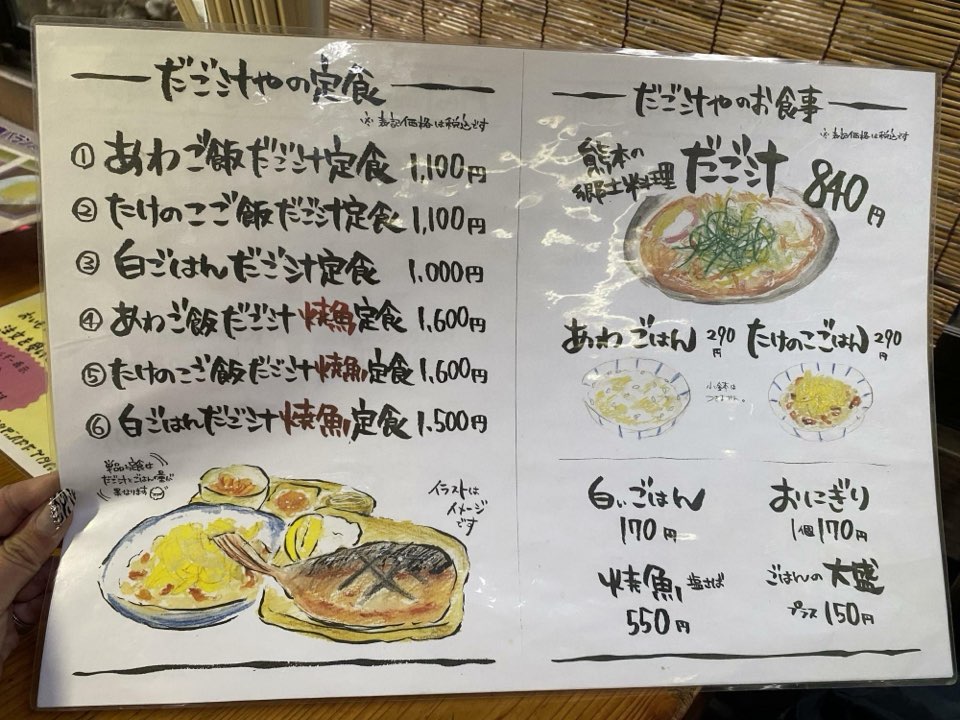 だご汁やの定食
※表記価格は税込です
① あわご飯だご汁定食 1,100円
② たけのこご飯だご汁定食 1,100円
③ 白ごはんだご汁定食 1,000円
④ あわご飯だご汁焼魚定食 1,600円
⑤ たけのこご飯だご汁焼魚定食 1,600円
⑥ 白ごはんだご汁焼魚定食 1,500円
単品と定食は
だご汁とごはんの量が
異なります
イラストは
イメージ
です
だご汁やのお食事
※表記価格は税込です
熊本の
郷土料理
だご汁
840円
あわごはん 290円
小鉢は
つきません。
たけのこごはん 290円
白いごはん
170円
おにぎり
1個170円
焼魚 塩さば
550円
ごはんの大盛
プラス150円